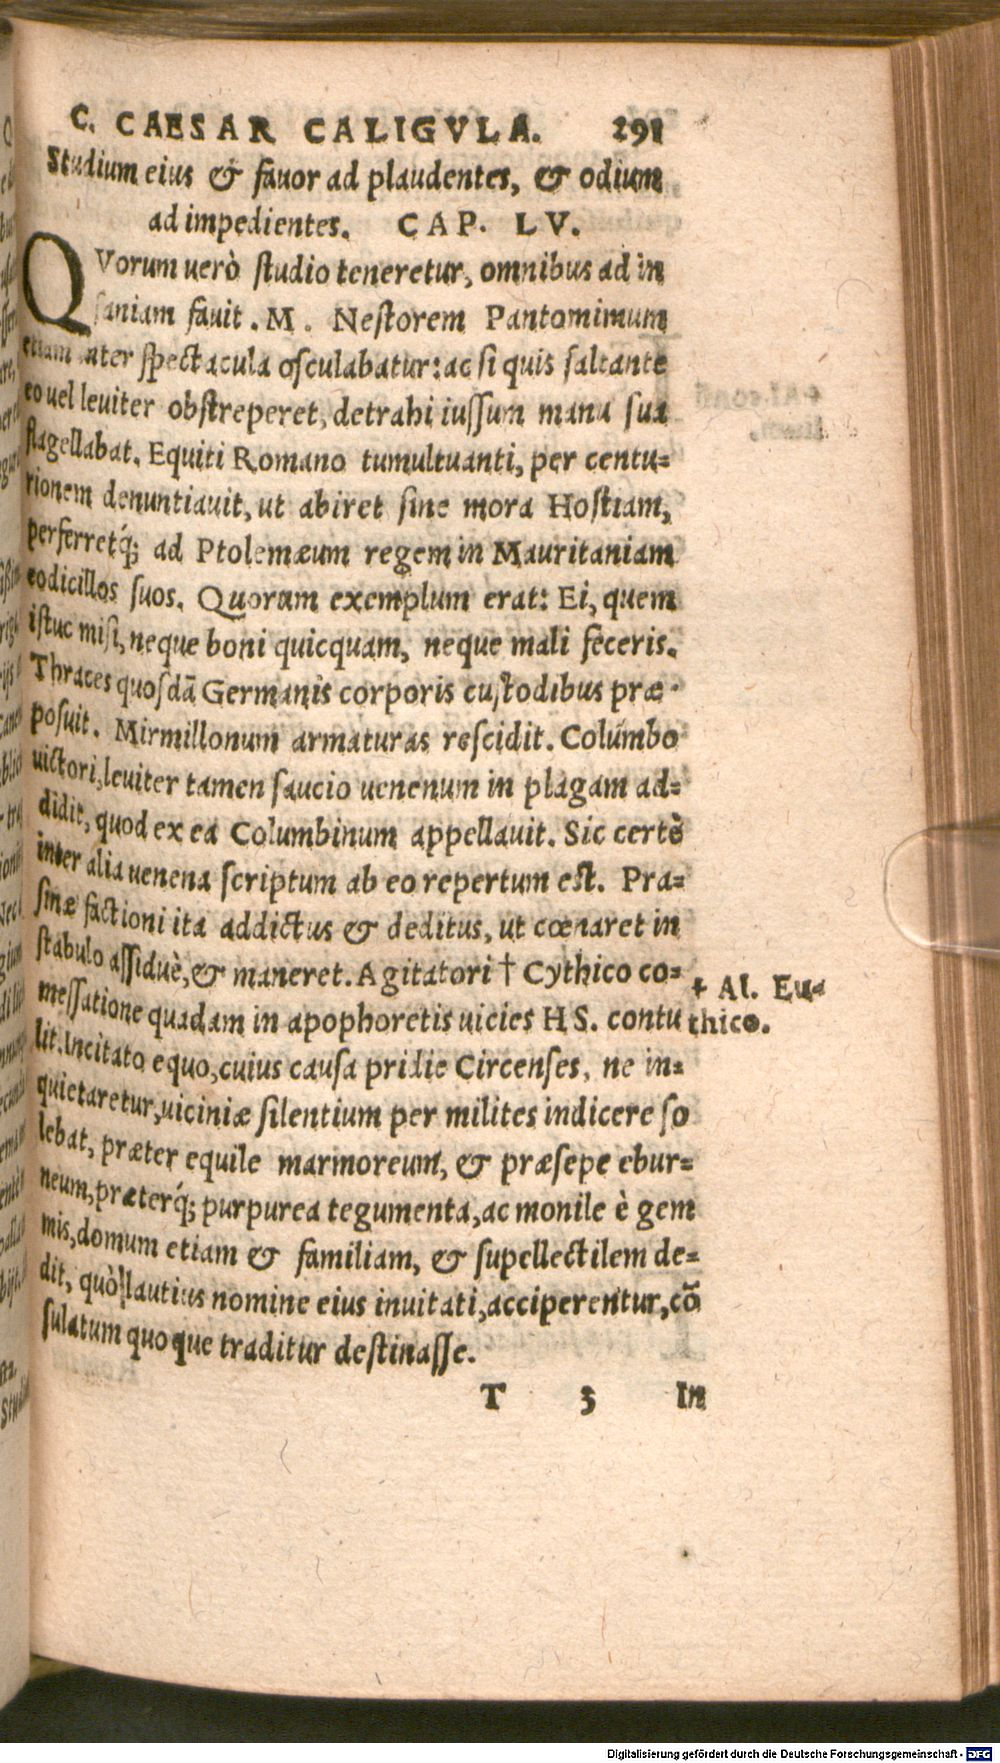 C. CAESAR CALIGVLA. 291
Studium eius & fauor ad plaudentes, & odium
ad impedientes. CAP. LV.
QVorum uerò studio teneretur, omnibus ad in
saniam fauit. M. Nestorem Pantomimum
etiam inter spectacula osculabatur: ac si quis saltante
eo uel leuiter obstreperet, detrahi iussum manu sua
flagellabat. Equiti Romano tumultuanti, per centu=
rionem denuntiauit, ut abiret sine mora Hostiam,
perferretq́; ad Ptolemæum regem in Mauritaniam
codicillos suos. Quorum exemplum erat: Ei, quem
istuc misi, neque boni quicquam, neque mali feceris.
Thraces quosdã Germanis corporis custodibus præ-
posuit. Mirmillonum armaturas rescidit. Columbo
uictori, leuiter tamen saucio uenenum in plagam ad=
didit, quod ex ea Columbinum appellauit. Sic certè
inter alia uenena scriptum ab eo repertum est. Pra=
sinæ factioni ita addictus & deditus, ut cœnaret in
stabulo assiduè, & maneret. Agitatori † Cythico co=
messatione quadam in apophoretis uicies HS. contu
lit. Incitato equo, cuius causa pridie Circenses, ne in=
quietaretur, uiciniæ silentium per milites indicere so
lebat, præter equile marmoreum, & præsepe ebur=
neum, præterq́; purpurea tegumenta, ac monile è gem
mis, domum etiam & familiam, & supellectilem de=
dit, quò lautius nomine eius inuitati, acciperentur, cõ
sulatum quoque traditur destinasse.
† Al. Eu=
thico.
T 3 In
Digitalisierung gefördert durch die Deutsche Forschungsgemeinschaft - DFG